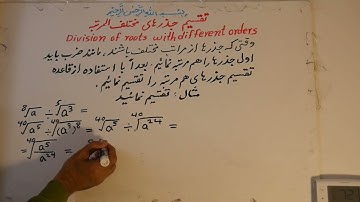 بسم الله الرحمن الرحیم
تقسیم جذرهای مختلف المرتبه
Division of roots with different orders
وقتی که جذرها از مراتب مختلف باشند، مانند ضرب باید
اول جذرها را هم مرتبه نمایم. بعداً با استفاده از قاعده
تقسیم جذرهای هم مرتبه را تقسیم نمائیم.
مثال: تقسیم نمائید
⁸√a ÷ ⁵√a³ =
⁴⁰√a⁵ ÷ ⁴⁰√(a³)⁸ = ⁴⁰√a⁵ ÷ ⁴⁰√a²⁴ =
= ⁴⁰√(a⁵/a²⁴) =